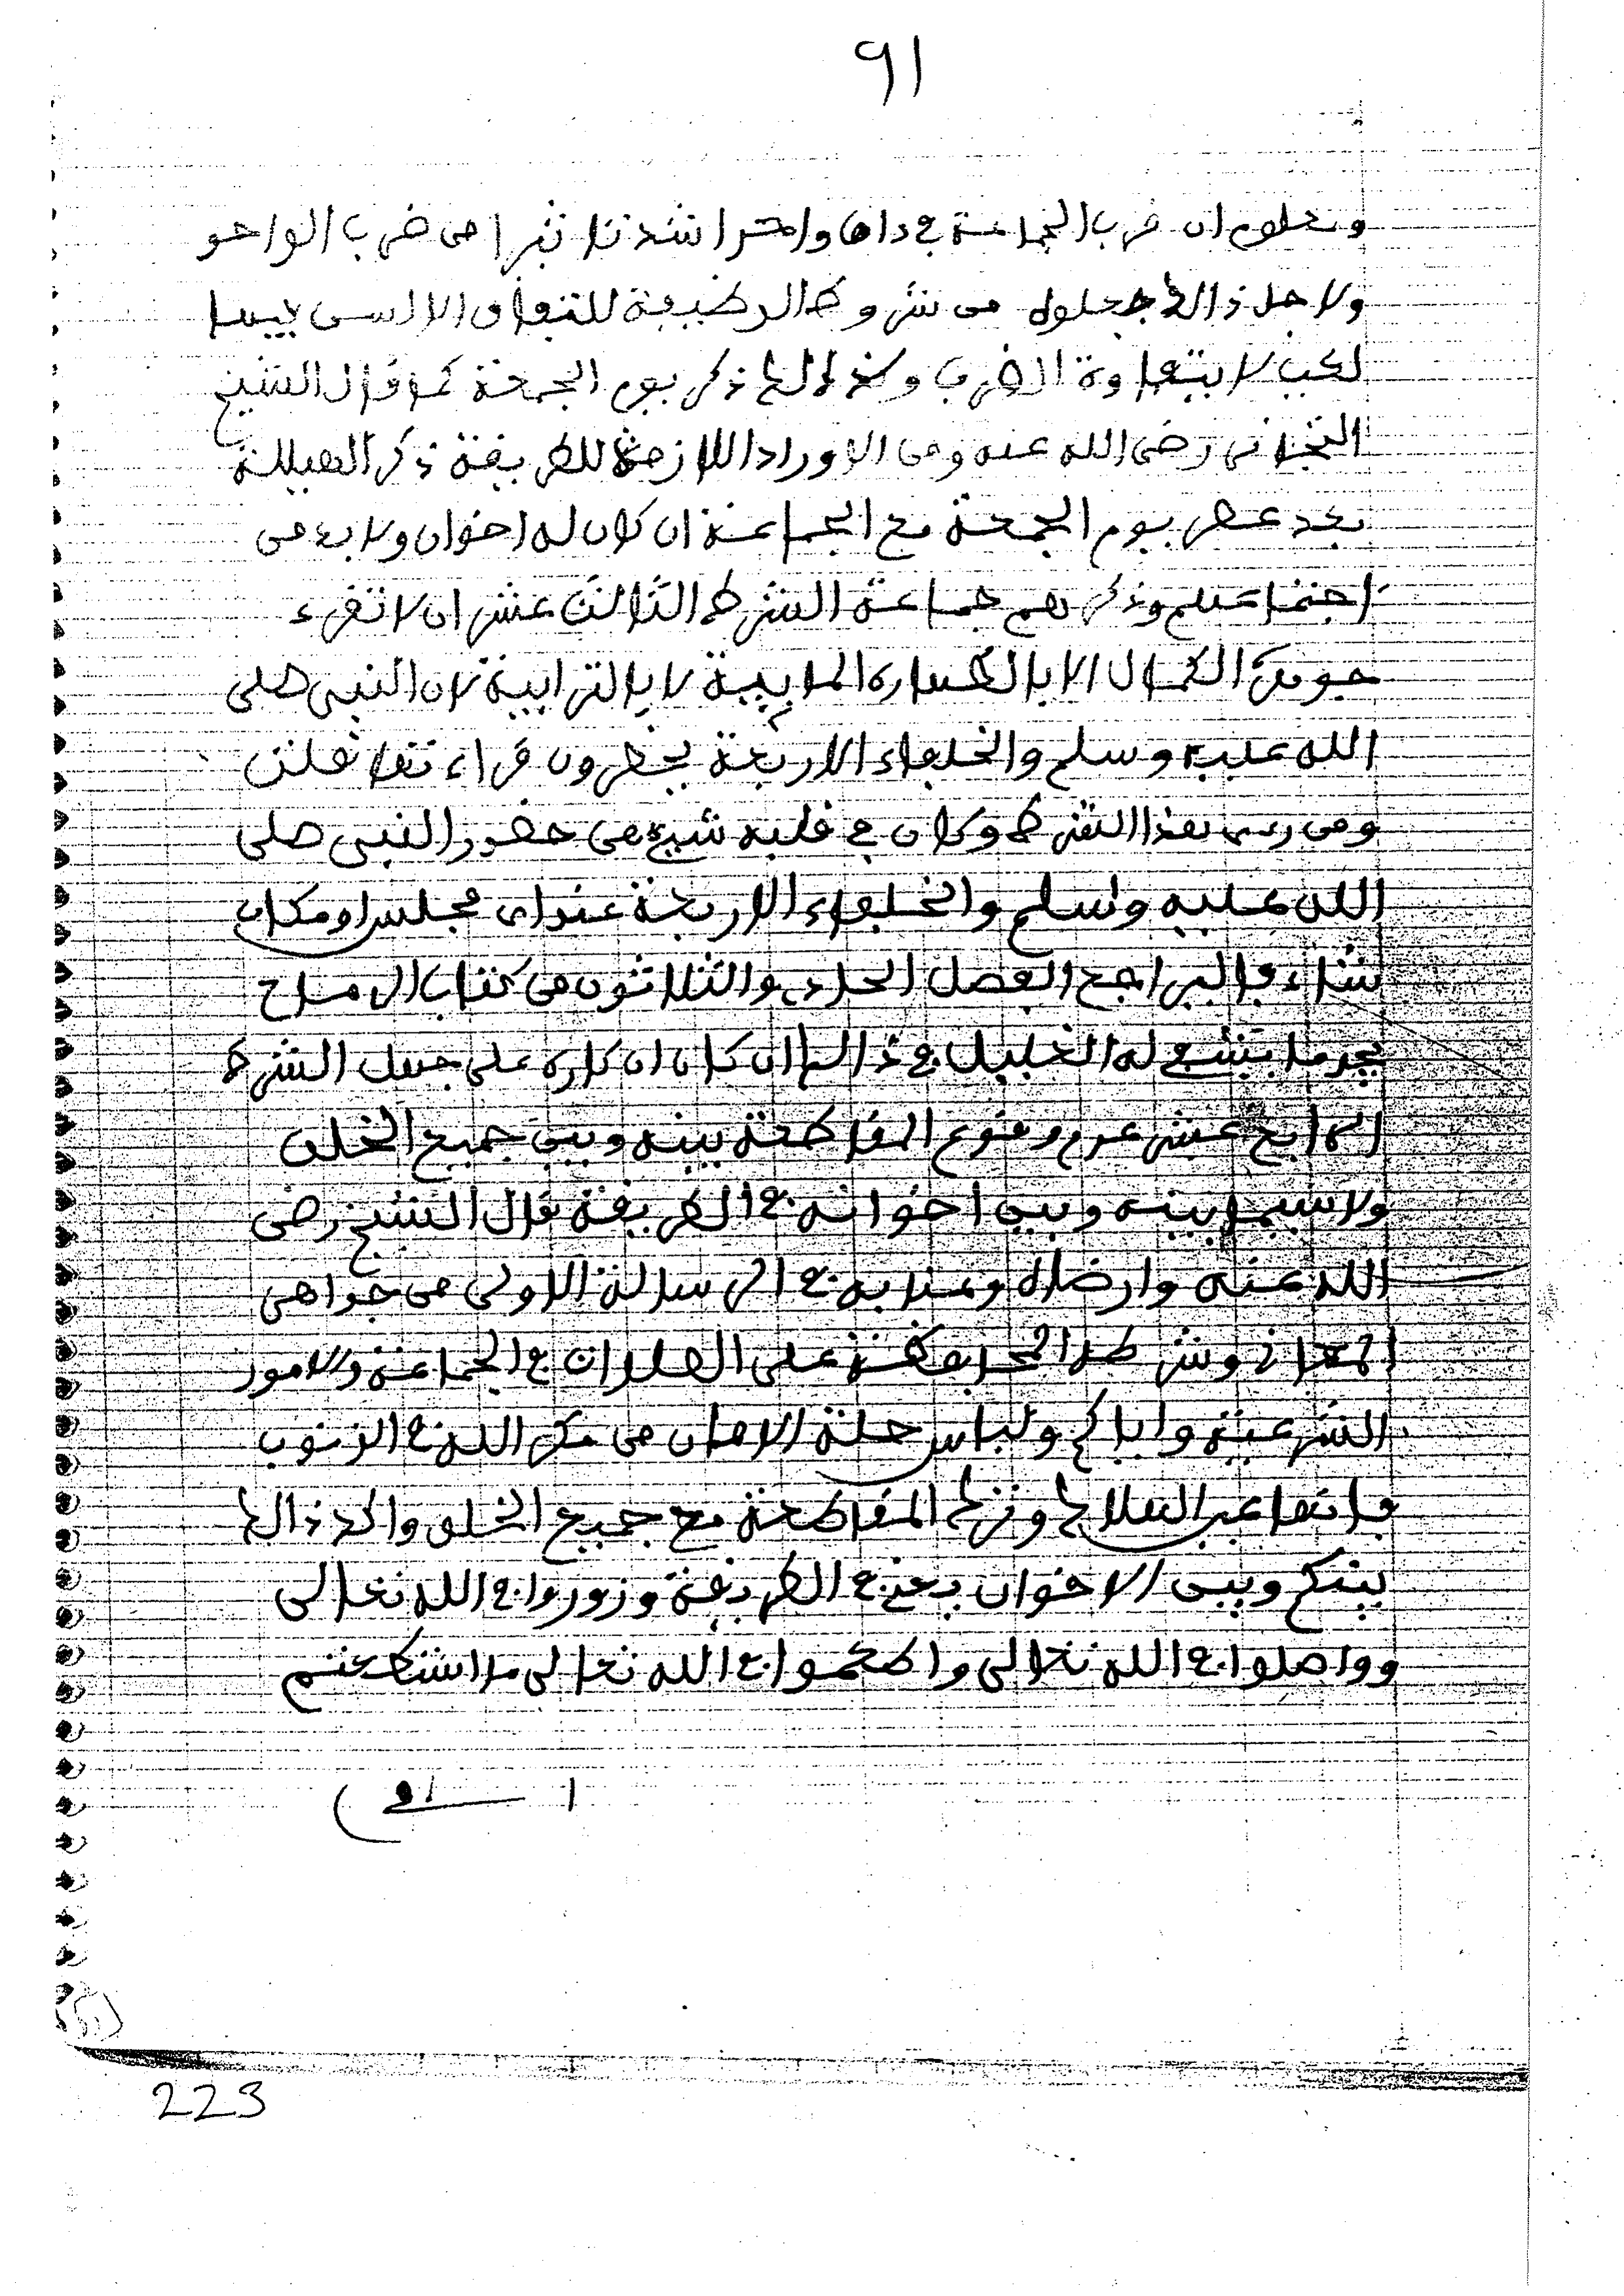 91
ومعلوم ان ضرب الجماعة في دان واحد اشد تاثيرا من ضرب الواحد
ولاجل ذالك جعلوه من شروط الوظيفة للتفاق الالسن
لا يتفاوة الضرب وكذالك ذكر يوم الجمعة كما قال الشيخ
التجاني رضي الله عنه ومن الاوراد اللازمة للطريقة ذكر الهيللة
بعد عصر يوم الجمعة مع الجماعة ان كان له اخوان ولابد من
اجتماعهم وذكرهم جماعة الشرط الثالث عشر ان لا تقرء
جوهرة الكمال الا بالطهارة المابيية لا بالترابية لان النبي صلى
الله عليه وسلم والخلفاء الاربعة يحضرون قراءتها قلت
ومن بهذا الشرط وكان في قلبه شيء من حضور النبي صلى
الله عليه وسلم والخلفاء الاربعة عند اى مجلس او مكان
شاء فاليراجع الفصل الحادي والثلاثون من كتاب الرماح
يجد ما يشفى له الغليل في ذالك ان كان انكاره على جهل الشرط
الرابع عشر عدم وقوع المقاطعة بينه وبين جميع الخلق
ولاسيما بينه وبين اخوانه في الطريقة قال الشيخ رضي
الله عنه وارضاه وعنا به في الرسالة الاولى من جواهر
المعاني وشرطه المحافظة على الصلوات في الجماعة والامور
الشرعية واياكم ولباس حلة الامان من مكر الله في الذنوب
فانها عين الهلاك وترك المقاطعة مع جميع الخلق واكد ذالك
بينكم وبين الاخوان يعني في الطريقة وزوروا في الله تعالى
وواصلوا في الله تعالى واطعموا في الله تعالى ما استطعتم
91
223